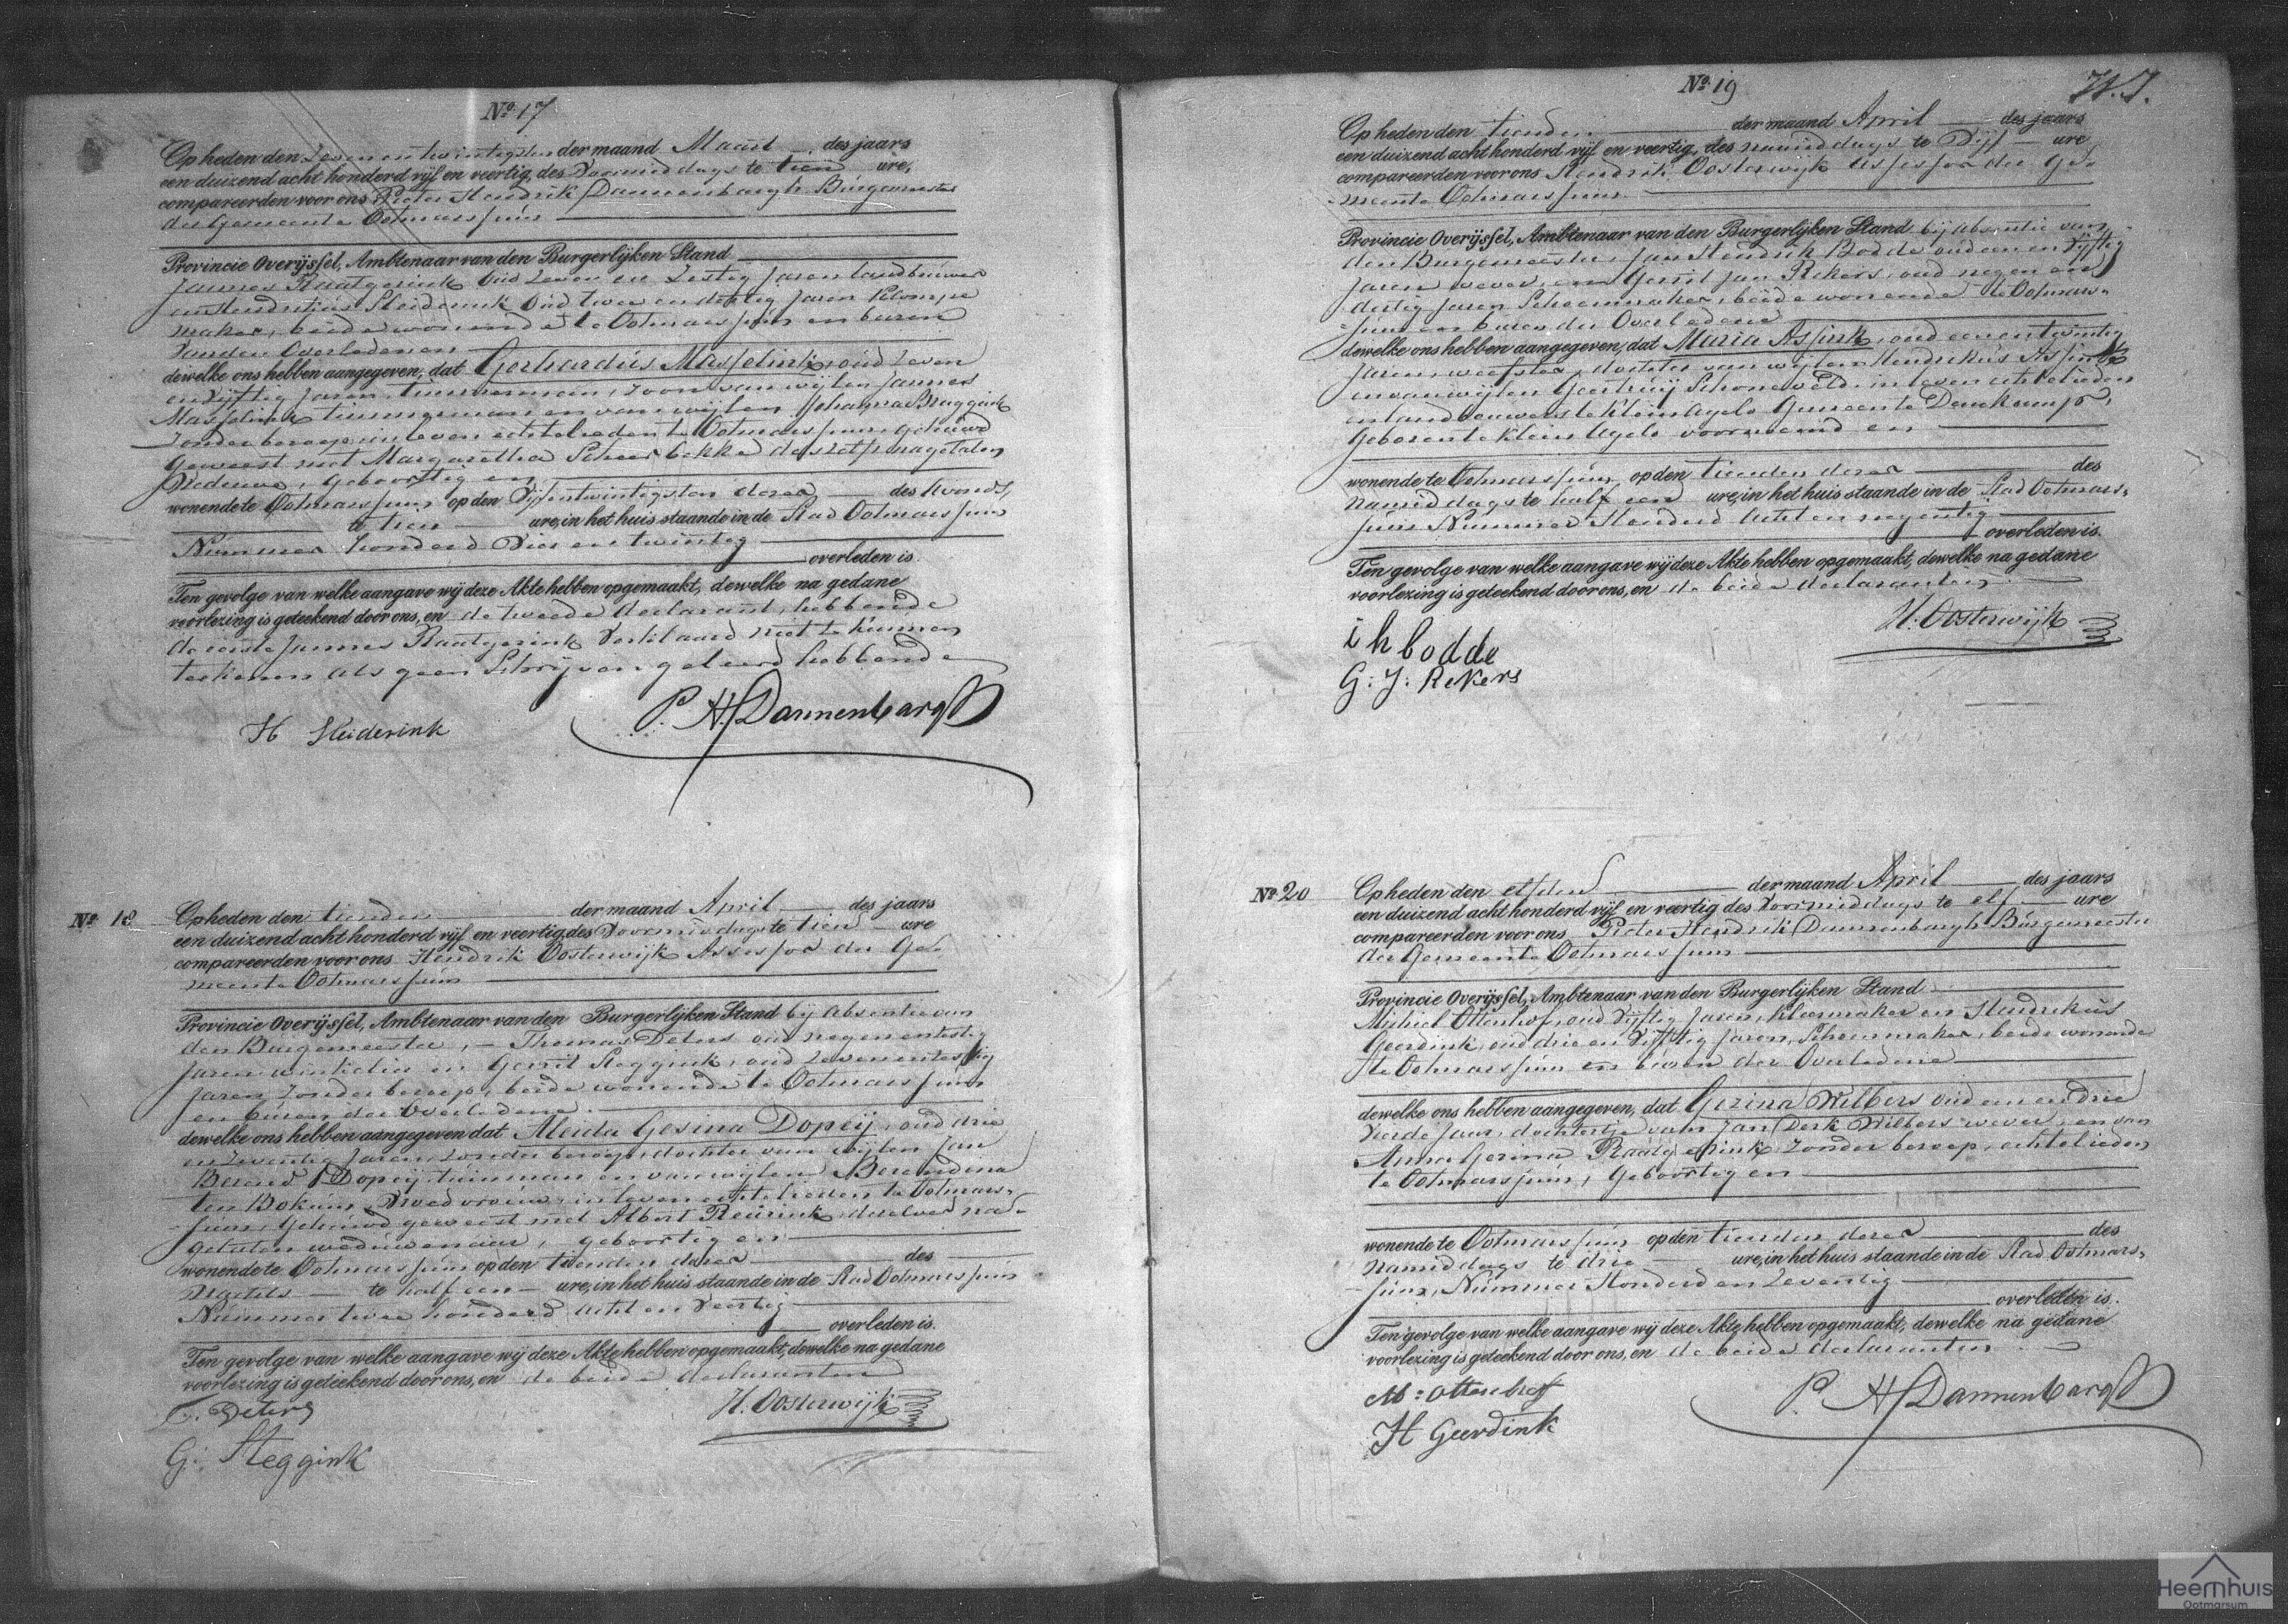 Nº 17
Op heden den Zevenentwintigsten der maand Maart des jaars
een duizend acht honderd vijf en veertig, des Voormiddags te tien ure,
compareerden voor ons Pieter Hendrik Dannenbargh Burgemeester
der Gemeente Ootmarssum
Provincie Overijssel, Ambtenaar van den Burgerlijken Stand
Jannes Raatgerink Oud Zeven en Zestig Jaren landbouwer
en Hendrikus Heiderink Oud twee en dertig Jaren Klompe
maker, beide wonende te Ootmarssum en buren
Van den Overledenen
dewelke ons hebben aangegeven, dat Gerhardus Masselink, oud Zeven
en Vijftig Jaren, timmerman, zoon van wijlen Jannes
Masselink timmerman en van wijlen Johanna Bruggink
zonder beroep in leven echtelieden te Ootmarssum, gehuwd
geweest met Margaretha Scheer bekke deszelfs nagelaten
Weduwe, geboortig en
wonende te Ootmarssum op den Vijfentwintigsten dezer des Avonds,
te tien ure, in het huis staande in de Stad Ootmarssum
Nummer honderd Vier en twintig
overleden is.
Ten gevolge van welke aangave wij deze Akte hebben opgemaakt, dewelke na gedane
voorlezing is geteekend door ons, en de tweede declarant, hebbende
de eerste Jannes Raatgerink Verklaard niet te kunnen
teekenen als geen Schrijven geleerd hebbende
P. H. Dannenbargh
H Heiderink
Nº 18
Op heden den tienden der maand April des jaars
een duizend acht honderd vijf en veertig, des Voormiddags te tien ure
compareerden voor ons Hendrik Oosterwijk Assessor der Ge-
meente Ootmarssum
Provincie Overijssel, Ambtenaar van den Burgerlijken Stand bij absentie van
den Burgemeester, Thomas Deters oud negenentestig
Jaren winkelier en Gerrit Steggink, oud Zevenentestig
Jaren, zonder beroep, beide wonende te Ootmarssum
en buren der Overledene
dewelke ons hebben aangegeven dat Aleida Gesina Dopeij, oud drie
en Zeventig Jaren, zonder beroep, dochter van wijlen Jan
Berend Dopeij, tuinman en van wijlen Berendina
ten Bokum, Vroedvrouw, in leven echtelieden te Ootmars-
sum, Gehuwd geweest met Albert Reurink, derzelver na-
gelaten weduwenaar, geboortig en
wonende te Ootmarssum op den tienden dezer des
Nachts te half een ure, in het huis staande in de Stad Ootmarssum
Nummer twee honderd acht en Veertig
overleden is.
Ten gevolge van welke aangave wij deze Akte hebben opgemaakt, dewelke na gedane
voorlezing is geteekend door ons, en de beide declaranten
H. Oosterwijk
T. Deters
G: Steggink
Nº 19
Op heden den tienden der maand April des jaars
een duizend acht honderd vijf en veertig, des namiddags te Vijf ure
compareerden voor ons Hendrik Oosterwijk Assessor der Ge-
meente Ootmarssum
Provincie Overijssel, Ambtenaar van den Burgerlijken Stand bij absentie van
den Burgemeester, Jan Hendrik Bodde oud een en Vijftig
Jaren wever, en Gerrit Jan Rekers, oud negen en
dertig Jaren Schoenmaker, beide wonende te Ootmars-
sum en buren der Overledene
dewelke ons hebben aangegeven, dat Maria Assink, oud eenentwintig
Jaren, weefster, dochter van wijlen Hendrikus Assink
en van wijlen Geertruij Schoneveld, in leven echtelieden
en landbouwers te Klein Agelo Gemeente Denekamp,
Geboren te Klein Agelo voornoemd en
wonende te Ootmarssum, op den tienden dezer des
Namiddags te half een ure, in het huis staande in de Stad Ootmars-
sum Nummer Honderd Acht en negentig
overleden is.
Ten gevolge van welke aangave wij deze Akte hebben opgemaakt, dewelke na gedane
voorlezing is geteekend door ons, en de beide declaranten
H. Oosterwijk
i h bodde
G: J: Rekers
Nº 20
Op heden den elfden der maand April des jaars
een duizend acht honderd vijf en veertig des Voormiddags te elf ure
compareerden voor ons Pieter Hendrik Dannenbargh Burgemeester
der Gemeente Ootmarssum
Provincie Overijssel, Ambtenaar van den Burgerlijken Stand
Michiel Ottenhof, oud Vijftig Jaren, Kleermaker en Hendrikus
Geerdink, oud drie en Vijftig Jaren, Schoenmaker, beide wonende
te Ootmarssum en buren der Overledene
dewelke ons hebben aangegeven, dat Gezina Wilbers oud een en drie
Vierde Jaar, dochtertje van Jan Derk Wilbers wever, en van
Anna Gezina Raatgerink, zonder beroep, echtelieden
te Ootmarssum, Geboortig en
wonende te Ootmarssum op den tienden dezer des
Namiddags te drie ure, in het huis staande in de Stad Ootmars-
sum, Nummer Honderd en Zeventig
overleden is.
Ten gevolge van welke aangave wij deze Akte hebben opgemaakt, dewelke na gedane
voorlezing is geteekend door ons, en de beide declaranten
P. H. Dannenbargh
M: Ottenhoff
H Geerdink
Heemhuis
Ootmarsum